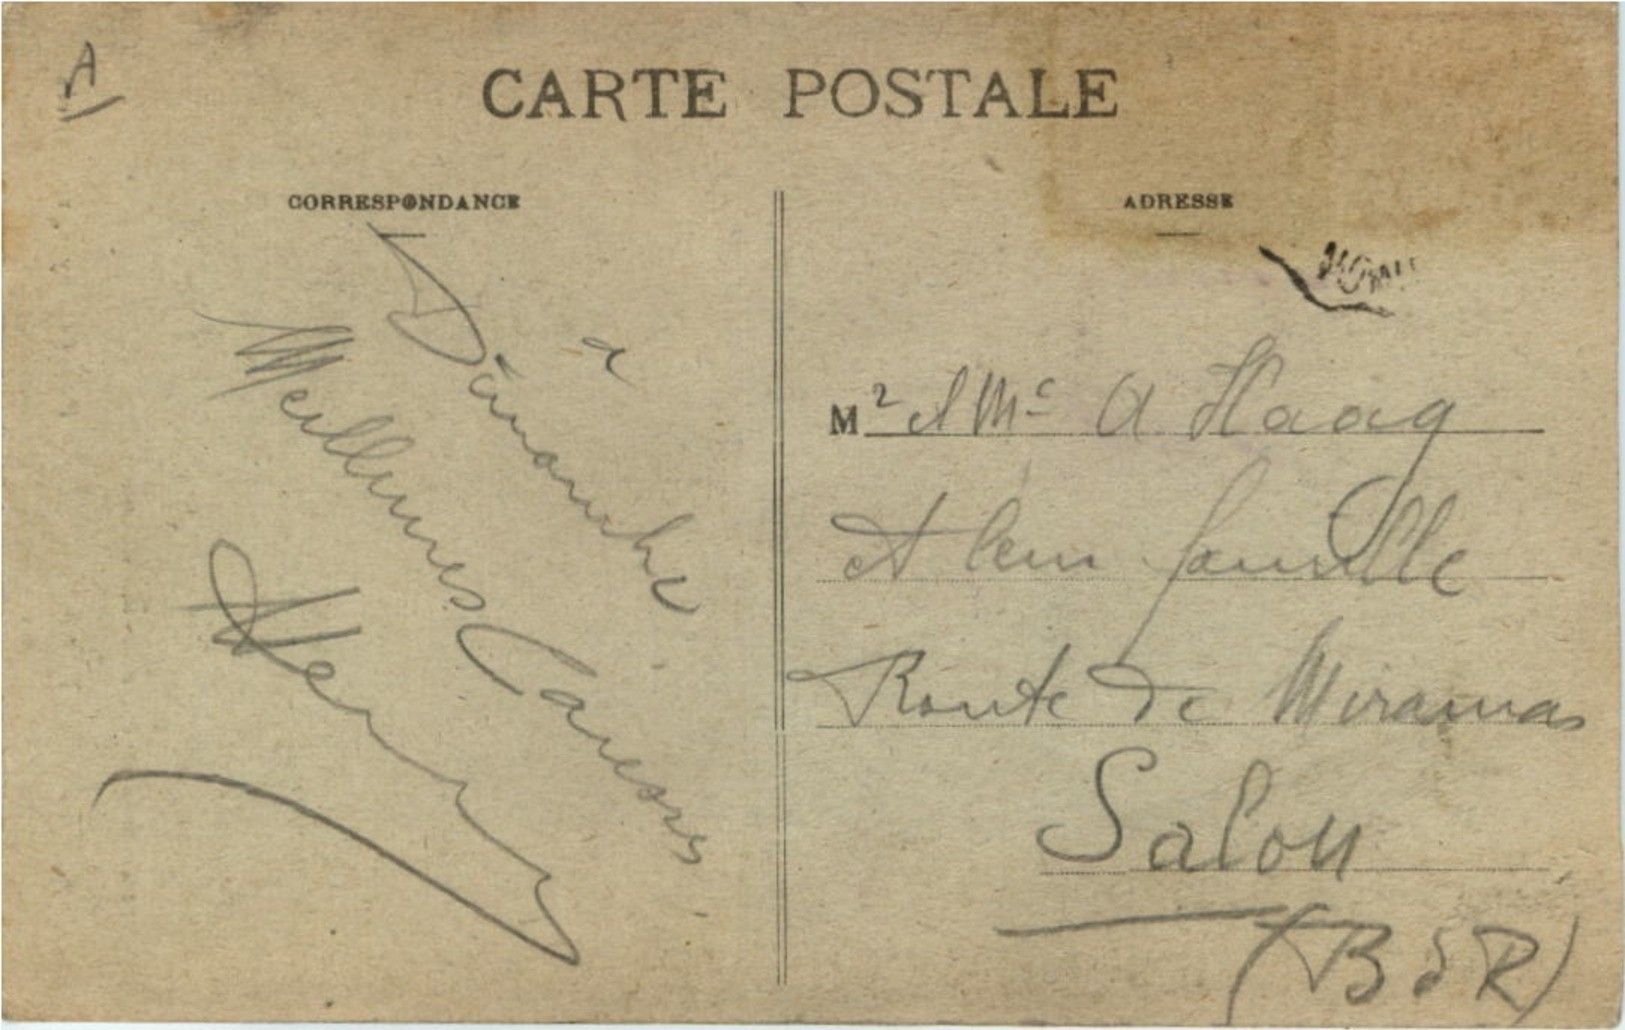 A
CARTE POSTALE
CORRESPONDANCE
à
Dimanche
Meilleures Caresses
Henry
ADRESSE
Mr et Me A Haag
et leur famille
Route de Miramas
Salon
(B d R)